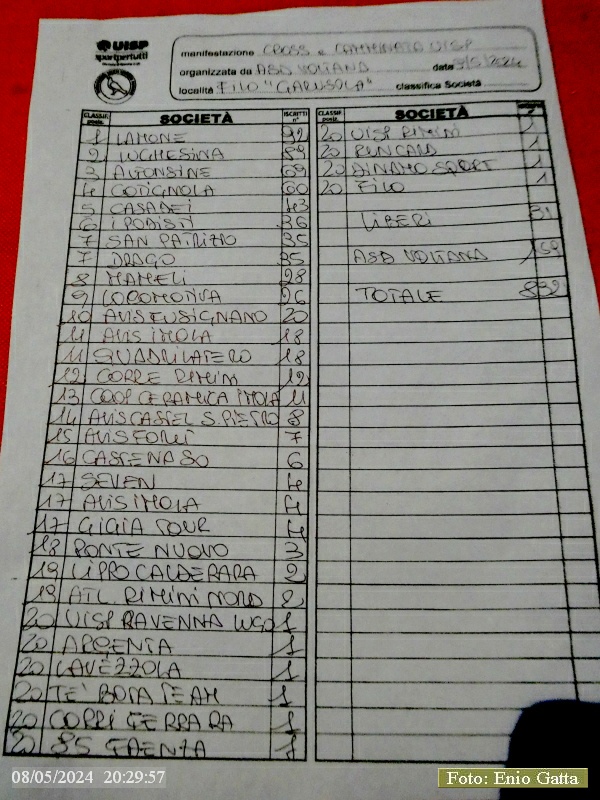 UISP
sportpertutti
manifestazione CROSS e CAMMINATA UISP
organizzata da ASD VOLTANA data 8/5/2024
località FILO "GARUSOLA" classifica Società
CLASSIF. SOCIETÀ ISCRITTI n°
1 LAMONE 92
2 LUGHESINA 89
3 ALFONSINE 69
4 COTIGNOLA 60
5 CASADEI 43
6 I PODISTI 36
7 SAN PATRIZIO 35
7 DRAGO 35
8 MAMELI 28
9 LOCOMOTIVA 26
10 AVIS FUSIGNANO 20
11 AVIS IMOLA 18
11 QUADRILATERO 18
12 CORRE RIMINI 12
13 COOP CERAMICA IMOLA 11
14 AVIS CASTEL S. PIETRO 8
15 AVIS FORLI 7
16 CASTENASO 6
17 SEVEN 4
17 AVIS IMOLA 4
17 GIGIA TOUR 4
18 PONTE NUOVO 3
19 LIPPO CALDERARA 2
19 ATL. RIMINI NORD 2
20 UISP RAVENNA LUGO 1
20 ARGENTA 1
20 LAVEZZOLA 1
20 TE' BOTA TEAM 1
20 CORRI FERRARA 1
20 85 FAENZA 1
CLASSIF. SOCIETÀ
20 UISP RIMINI 1
20 RUNCARD 1
20 DINAMO SPORT 1
20 FILO 1
LIBERI 31
ASD VOLTANA
TOTALE 832
08/05/2024 20:29:57
Foto: Enio Gatta